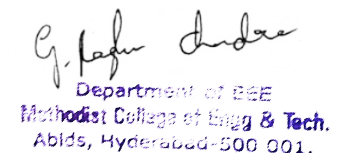 G. Raghu Chandra
Department of EEE
Methodist College of Engg & Tech.
Abids, Hyderabad-500 001.